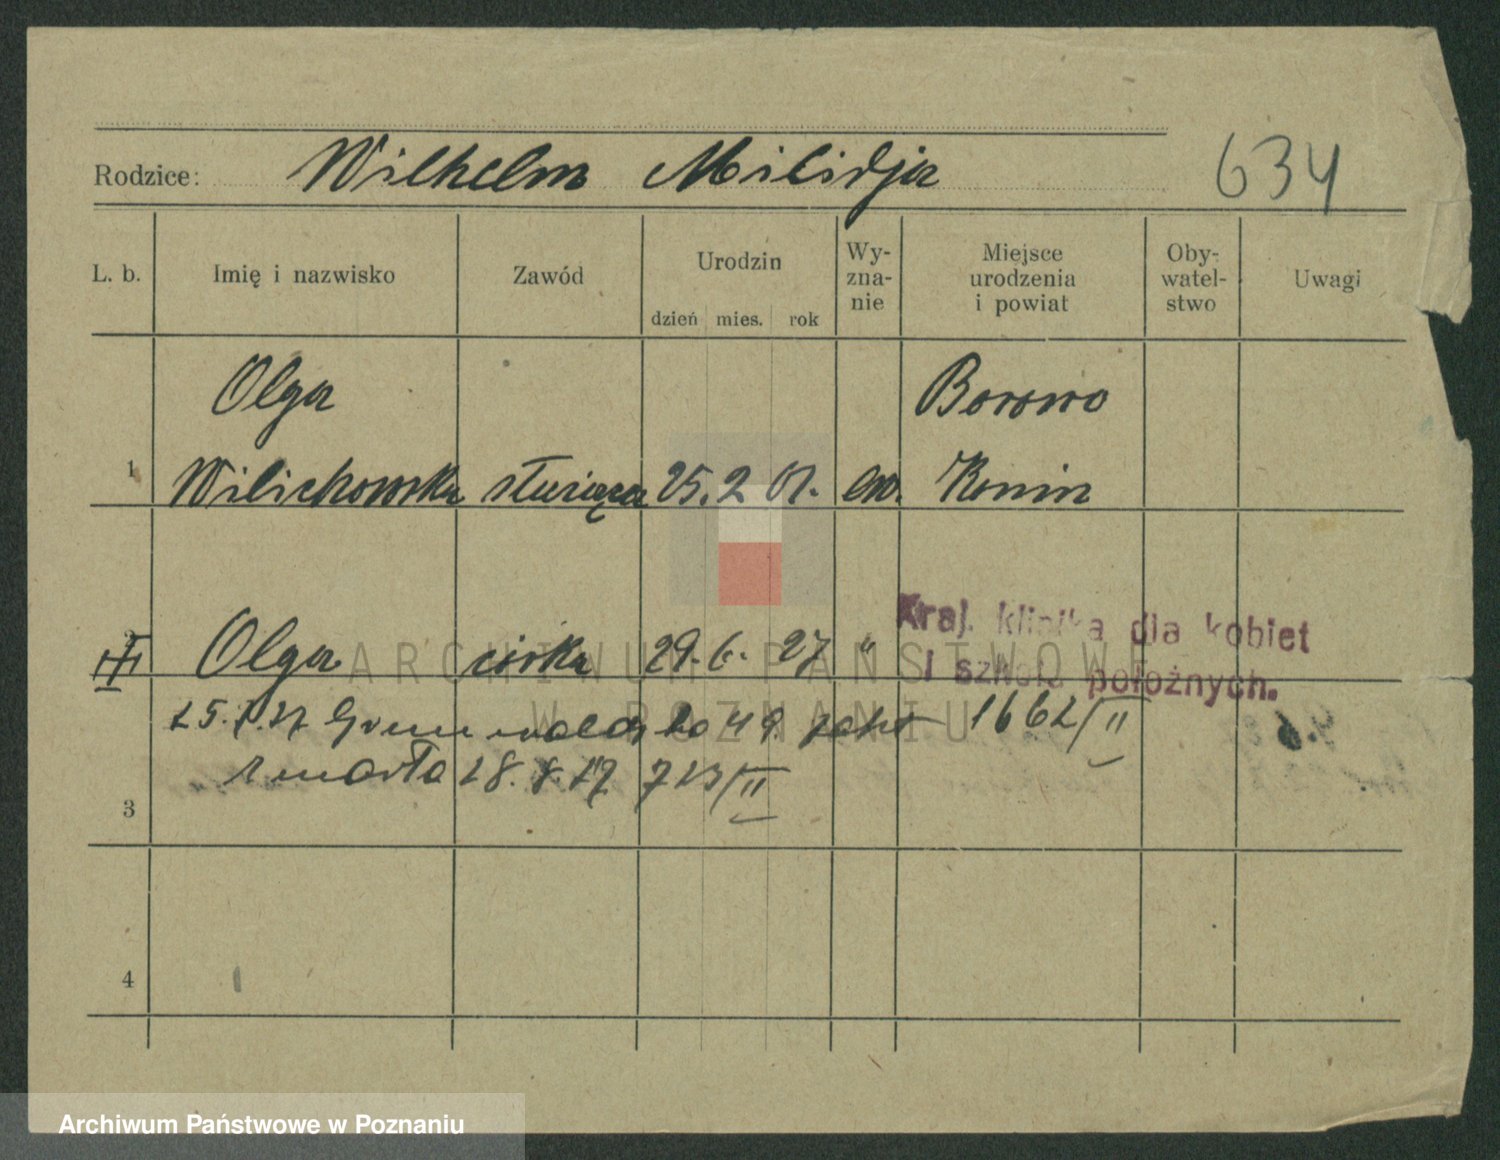 Rodzice: Wilhelm Milidja
634
L. b. Imię i nazwisko Zawód Urodzin dzień mies. rok Wy- zna- nie Miejsce urodzenia i powiat Oby- watel- stwo Uwagi
Olga Borowo
1 Wilichowska służąca 25. 2 01. ew. Konin
Kraj. klinika dla kobiet
i szkoła położnych.
Olga córka 29. 6. 27 "
49. 1662/II
zmarła 28. 8. 27 723/II
3
4
ARCHIWUM PAŃSTWOWE
W POZNANIU
Archiwum Państwowe w Poznaniu